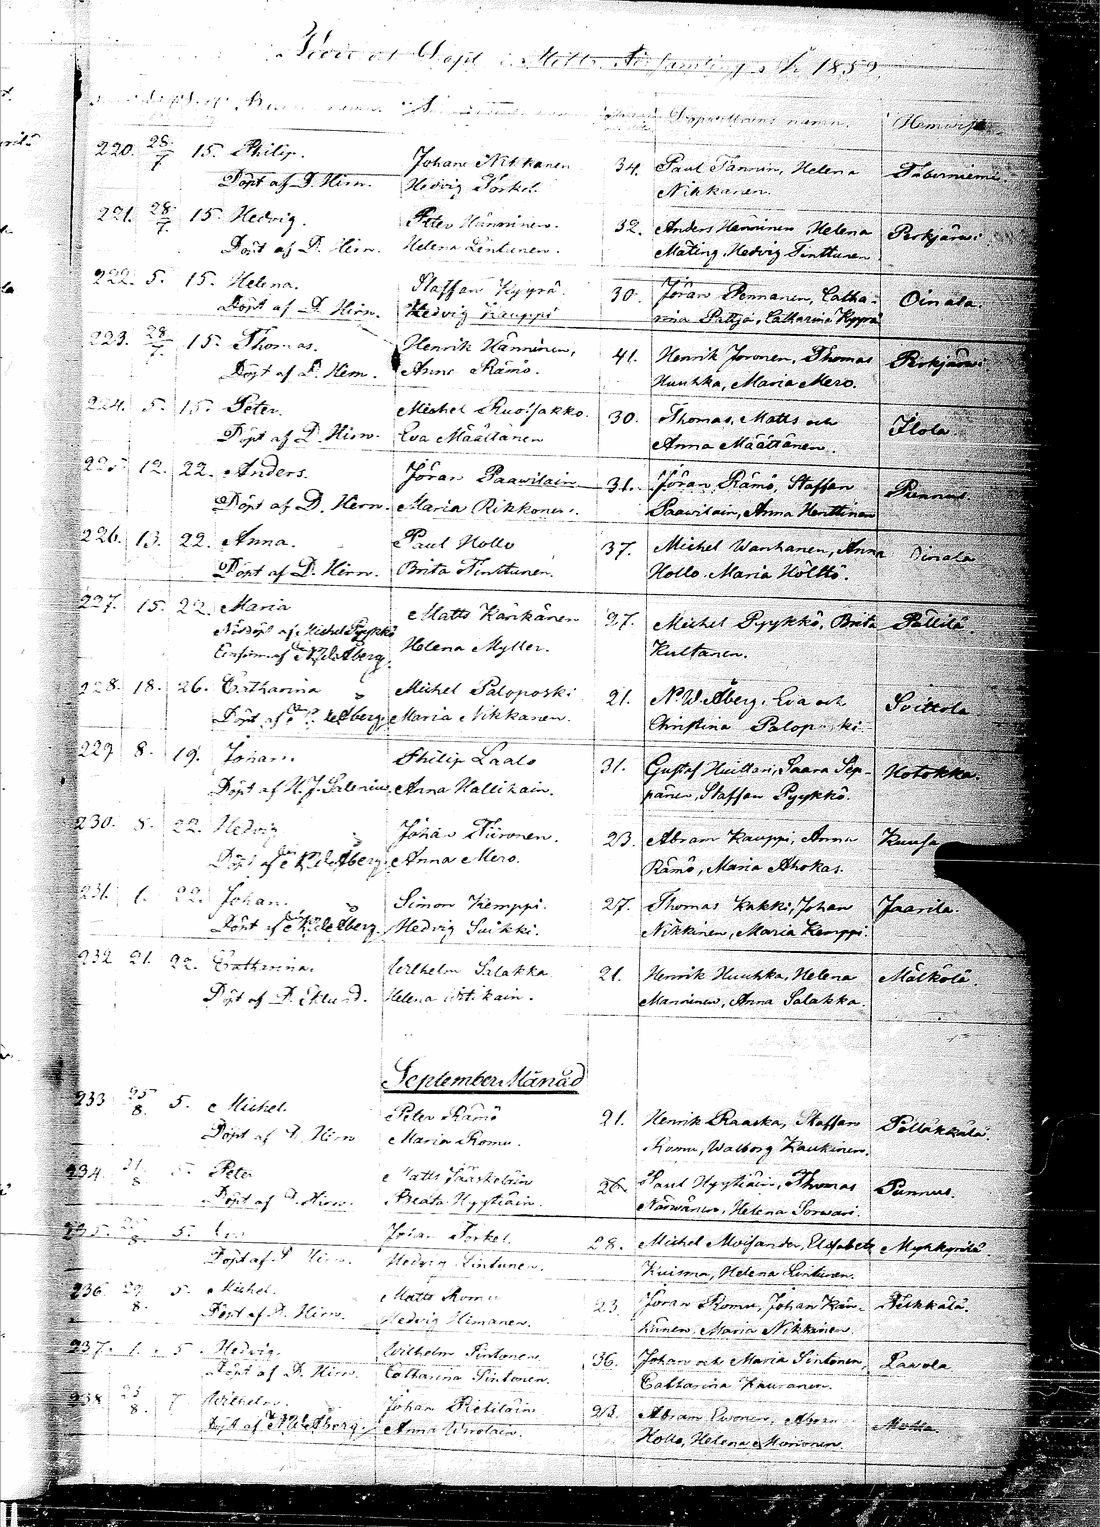 Född och Döpt i Mohla Församling År 1859.
Barnens namn. Föräldrarnes namn Hemvist
220. 28/7 15. Philip. Johan Nikkanen 34. Paul Tannin, Helena Taberniemi
Döpt af D. Hirn. Hedvig Torkel. Nikkanen.
221. 28/7. 15. Hedvig. Peter Hänninen. 32. Anders Hänninen Helena Perkjärvi
Döpt af D. Hirn. Helena Lintunen. Mäting, Hedvig Tinttunen
222. 5. 15. Helena. Staffan Kyyrä. 30. Jöran Pennanen, Catha- Oinala
Döpt af D. Hirn. Hedvig Kauppi rina Pattja, Catharina Kyyrä
223. 28/7. 15. Thomas. Henrik Hänninen, 41. Henrik Joronen, Thomas Perkjärvi
Döpt af D. Hirn. Anna Rämö. Huuhka, Maria Mero.
224. 5. 15. Peter. Michel Ruotjakko. 30. Thomas, Matts och Ilola
Döpt af D. Hirn. Eva Määttänen Anna Määttänen.
225 12. 22. Anders. Jöran Paavilain 31. Jöran Rämö, Staffan Punnus.
Döpt af D. Hirn. Maria Rikkonen. Paavilain, Anna Henttinen
226. 13. 22. Anna. Paul Hollo 37. Michel Wanhanen, Anna Oinala
Döpt af D. Hirn. Brita Tinttunen. Hollo, Maria Hölttö.
227. 15. 22. Maria Matts Karikänen 27. Michel Pyykkö, Brita Pällilä
Nöddöpt af Michel Pyykkö Helena Myller. Kultanen.
af N. W. Åberg.
228. 18. 26. Catharina Michel Paloposki 21. N. W. Åberg, Eva och Soittola
Döpt af N. W. Åberg. Maria Nikkanen. Christina Paloposki
229 8. 19. Johan. Philip Laalo 31. Gustaf Huittari, Saara Sep- Hotokka.
Döpt af H. J. Salenius. Anna Hallikain. pänen, Staffan Pyykkö.
230. 8. 22. Hedvig Johan Tiironen. 23. Abram Kauppi, Anna Kuusa
Döpt af N. W. Åberg. Anna Mero. Rämö, Maria Ahokas.
231. 1. 22. Johan. Simon Kemppi. 27. Thomas Kukki, Johan Jaarila.
Döpt af N. W. Åberg. Hedvig Suikki. Nikkinen, Maria Kemppi.
232 21. 22. Catharina. Wilhelm Salakka. 21. Henrik Huuhka, Helena Mälkölä.
Döpt af D. Eklund. Helena Ortikain. Manninen, Anna Salakka.
September Månad
233. 25/8. 5. Michel. Peter Rämö 21. Henrik Raaska, Staffan Pölläkkälä.
Döpt af D. Hirn Maria Romu. Romu, Walborg Kaukinen.
234. 21/8 5. Peter Matts Jääskeläin 26 Paul Hyytiäin, Thomas Punnus.
Döpt af D. Hirn. Beata Hyytiäin. Närwänen, Helena Sorwari.
235. 5. Johan Torkel. 28. Michel Moisander, Elisabeth Myhkyrilä.
Döpt af D. Hirn. Hedvig Lintunen. Kuisma, Helena Lintunen.
236. 29/8. 5. Michel. Matts Romu 23. Jöran Romu, Johan Kän- Pikkälä.
Döpt af D. Hirn. Hedvig Himanen. känen, Maria Nikkinen.
237. 1. 5 Hedvig. Wilhelm Sintonen. 36. Johan och Maria Sintonen, Lavola
Döpt af D. Hirn. Catharina Sintonen. Catharina Kauranen.
238 25/8. 7 Wilhelm. Johan Retilain 23. Abram Ewonen, Abram Mohla.
Döpt af N. W. Åberg. Anna Wirolain. Hollo, Helena Moronen.